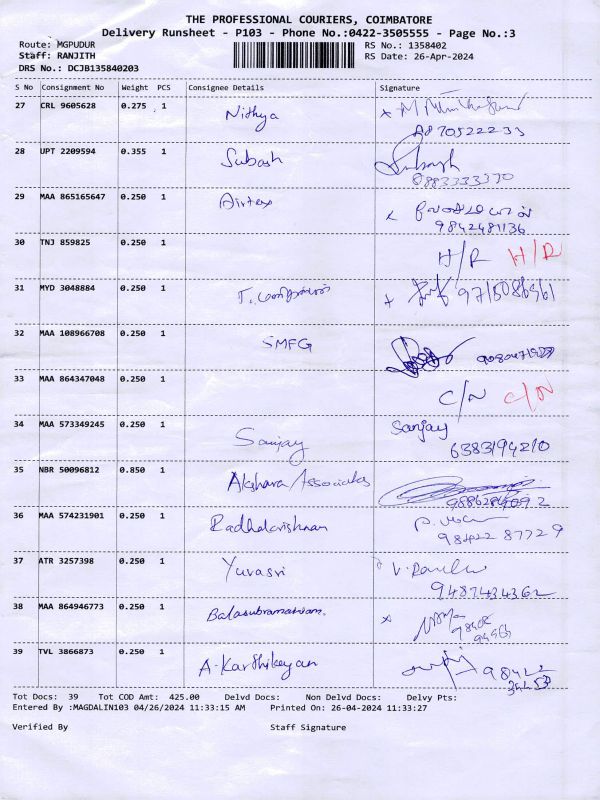 THE PROFESSIONAL COURIERS, COIMBATORE
Delivery Runsheet - P103 - Phone No.:0422-3505555 - Page No.:3
Route: MGPUDUR RS No.: 1358402
Staff: RANJITH RS Date: 26-Apr-2024
DRS No.: DCJB135840203
S No Consignment No Weight PCS Consignee Details Signature
27 CRL 9605628 0.275 1 Nithya
28 UPT 2209594 0.355 1 Subash
8883333370
29 MAA 865165647 0.250 1
9842481136
30 TNJ 859825 0.250 1
H/R H/R
31 MYD 3048884 0.250 1
32 MAA 108966708 0.250 1 SMFG
33 MAA 864347048 0.250 1
C/N C/N
34 MAA 573349245 0.250 1 Sanjay Sanjay
6383194210
35 NBR 50096812 0.850 1 Akshara Associates
36 MAA 574231901 0.250 1 Radhakrishnan
98422 87729
37 ATR 3257398 0.250 1 Yuvasri
9487434362
38 MAA 864946773 0.250 1 Balasubramaniam.
39 TVL 3866873 0.250 1 A-Karthikeyan
Tot Docs: 39 Tot COD Amt: 425.00 Delvd Docs: Non Delvd Docs: Delvy Pts:
Entered By :MAGDALIN103 04/26/2024 11:33:15 AM Printed On: 26-04-2024 11:33:27
Verified By Staff Signature